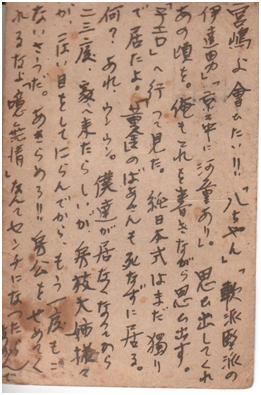 宮嶋よ會ひたい!!「八ちやん」「軟派堅派の
伊達男」「京の中に河童あり」思ひ出してくれ
あの頃を。俺もこれを書きながら思ひ出す。
へ行つて見た。純日本式はまだ獨り
で居たよ。のばあさんも死なずに居る。
何？あれ、ウンウン。僕達が居なくなつてから
二三度、家へ来たらしいが 房枝大姉様々
がこはい目をしてにらんでから、もう一度もこ
ないさうだ。あきらめろ!!房公をせめてく
れるなよ「噫無情」なんてセンチになつた